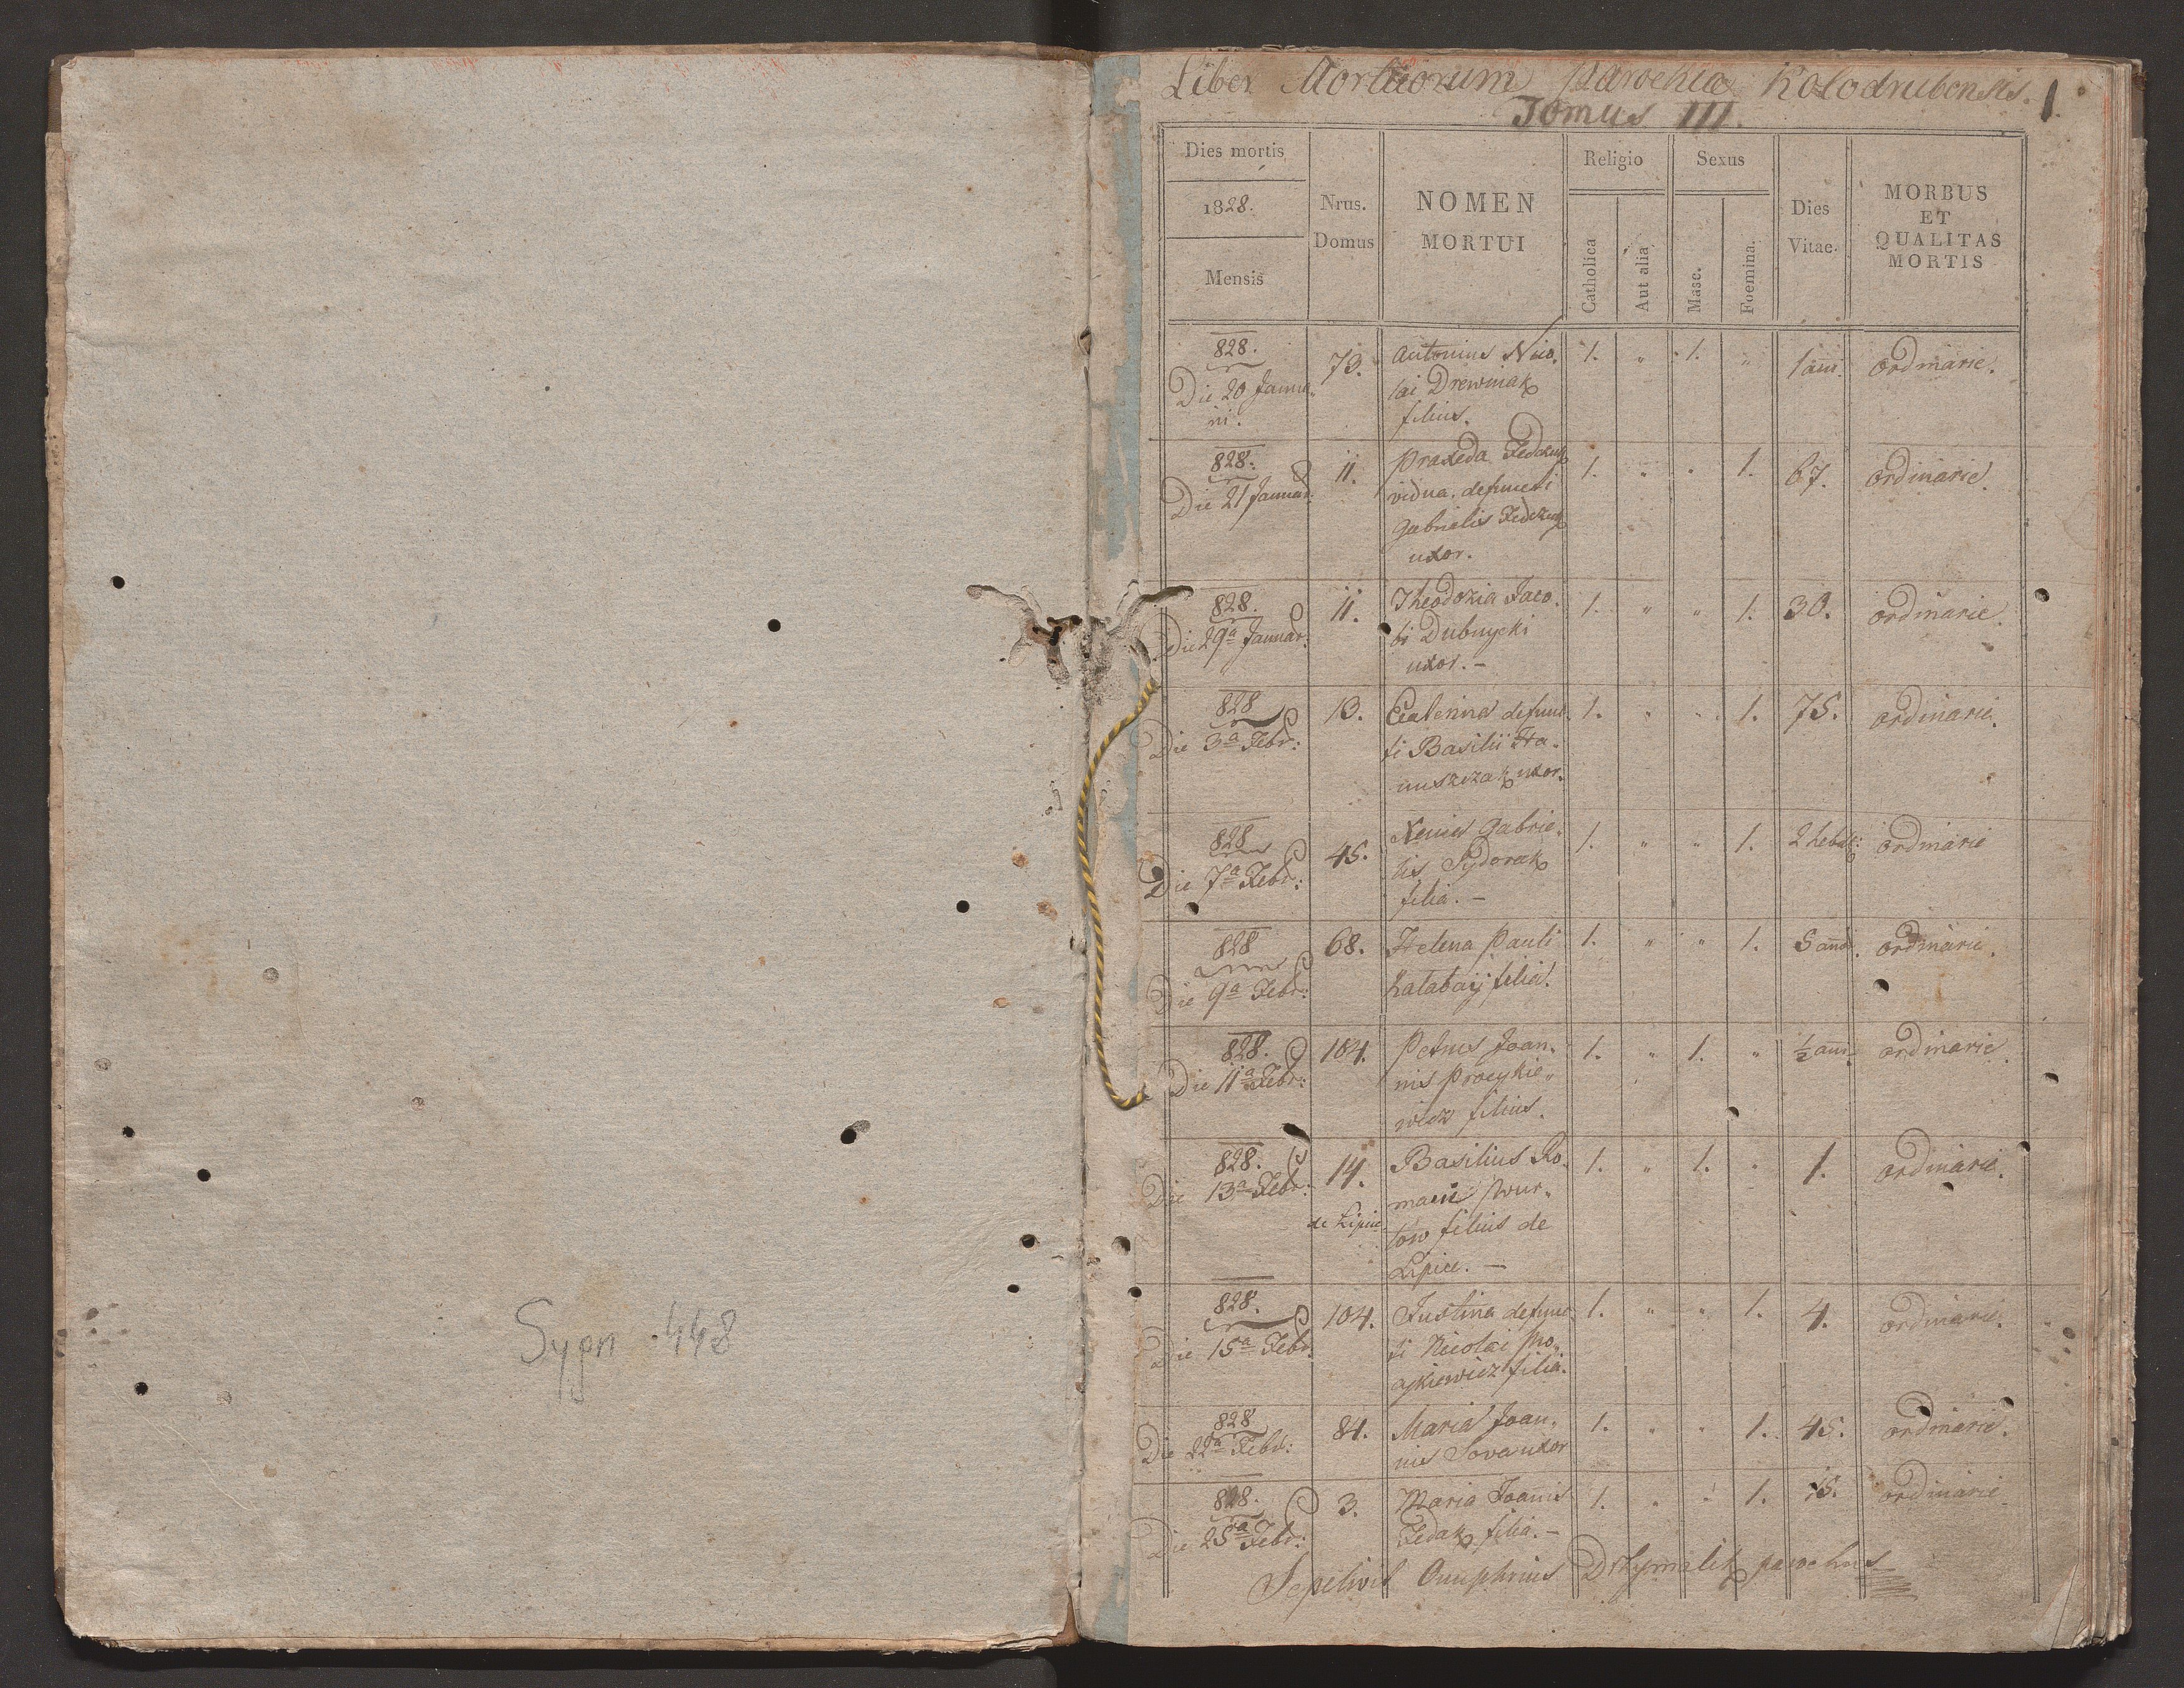 Sygn 448
Liber Mortuorum parochiæ Kołodrubensis. 1.
Tomus III.
Dies mortis
1828.
Mensis
Nrus.
Domus
NOMEN
MORTUI
Religio
Catholica
Aut alia
Sexus
Masc.
Foemina.
Dies
Vitae.
MORBUS
ET
QUALITAS
MORTIS
828.
Die 20 Janua„
rii.
73.
Antonius Nico„
lai Drewniak
filius.
1. „ 1. „
1 ann.
ordinarie.
828.
Die 21 Januar:
11.
Praxeda Fedczuk
vidua, defuncti
Gabrielis Fedczuk
uxor.
1. „ „ 1.
67.
ordinarie.
828.
Die 29a Januar.
11.
Theodozia Jaco„
bi Dubnycki
uxor. –
1. „ „ 1.
30.
ordinarie.
828
Die 3a Febr:
13.
defunc„
ti Basilii Ha„
nuszczak uxor.
1. „ „ 1.
75.
ordinarie.
828
Die 7a Febr:
45.
Xenia Gabrie„
lis Sydorak
filia. –
1. „ „ 1.
2 hebd:
ordinarie
828
Die 9a Febr:
68.
Helena Pauli
filia.
1. „ „ 1.
5 ann.
ordinarie.
828.
Die 11a Febr:
104.
Petrus Joan„
nis Procykie„
wicz filius.
1. „ 1. „
½ ann.
ordinarie.
828.
Die 13a Febr:
14.
de Lipice
Basilius Ro„
filius de
Lipice. –
1. „ 1. „
1.
ordinarie.
828.
Die 15a Febr.
104.
Justina defunc„
ti Nicolai Pro„
cykiewicz filia.
1. „ „ 1.
4.
ordinarie.
828
Die 22a Febr:
84.
Maria Joan„
nis Sova uxor
1. „ „ 1.
45.
ordinarie.
828.
Die 25a Febr:
3.
Maria Joannis
Fedak filia. –
1. „ „ 1.
15.
ordinarie
Sepelivit Onuphrius Drhymalik parochus